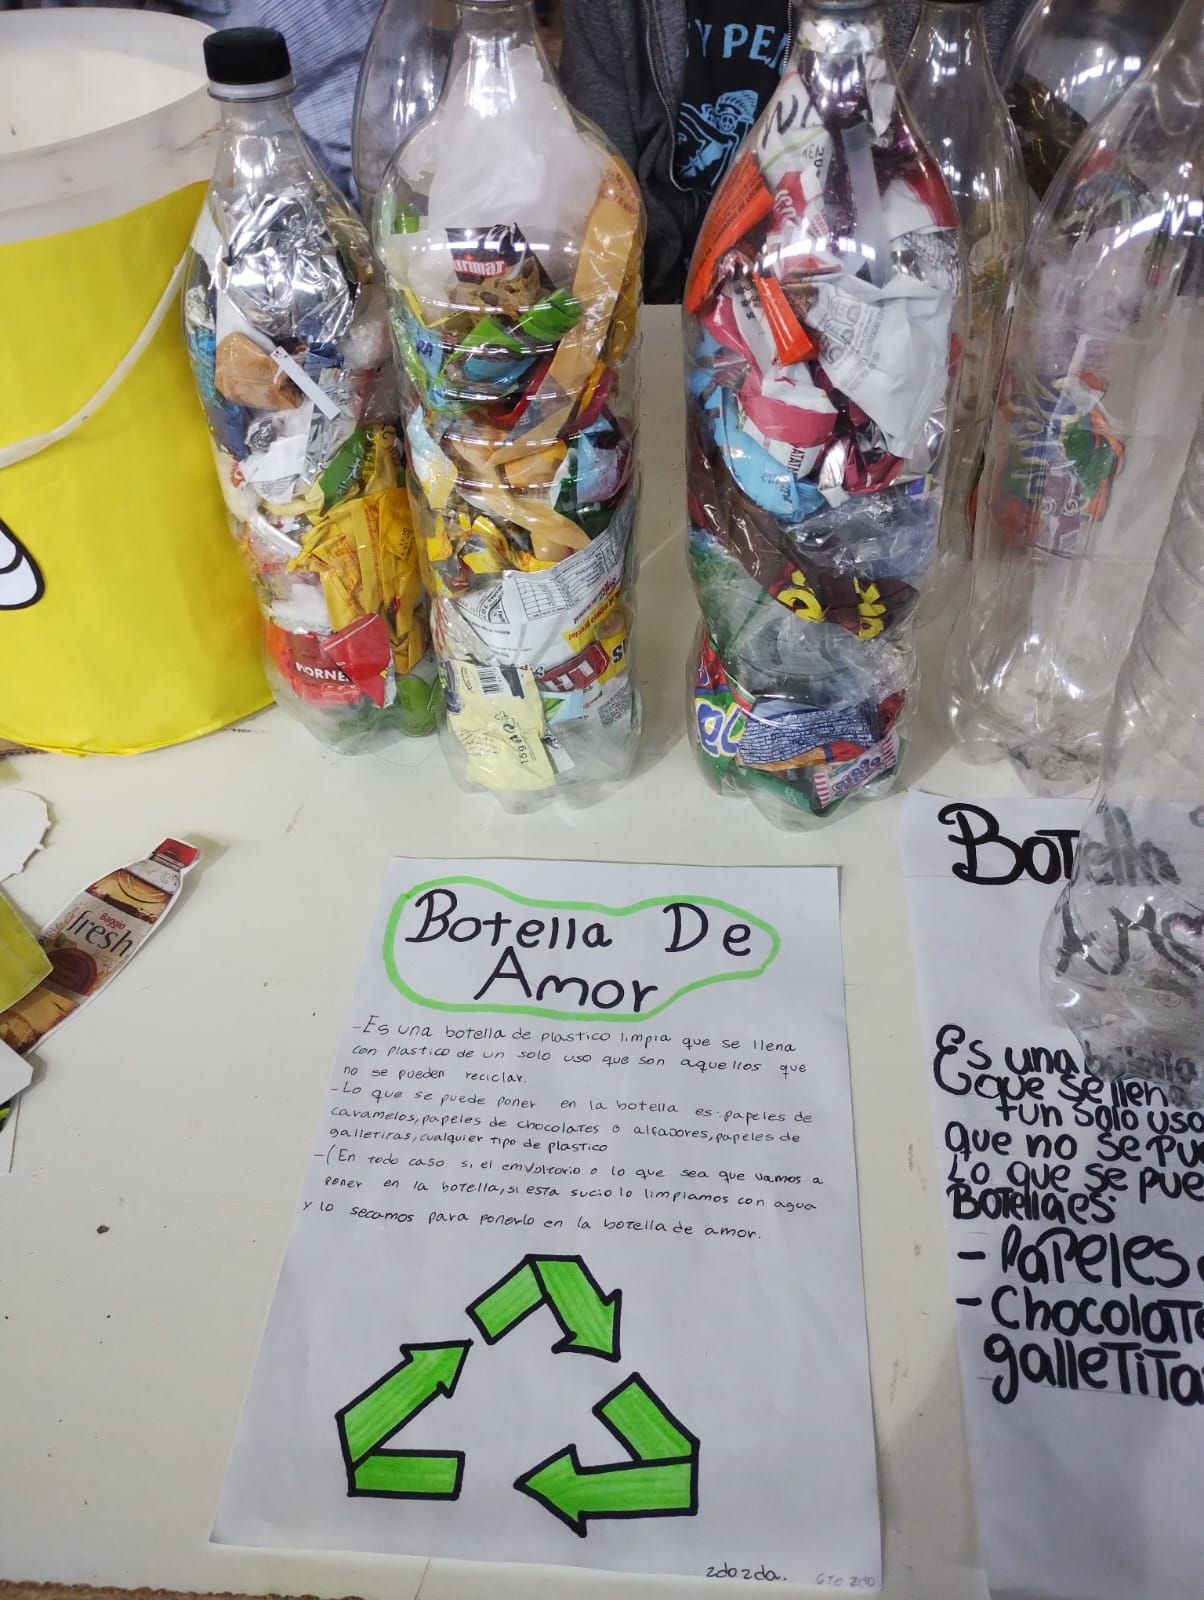 Y PEA
urimar
HORNE
Baggio
fresh
Botella De
Amor
-Es una botella de plastico limpia que se llena
con plastico de un solo uso que son aquellos que
no se pueden reciclar.
-Lo que se puede poner en la botella es: papeles de
caramelos, papeles de chocolates o alfajores, papeles de
galletitas, cualquier tipo de plastico
-(En todo caso si el emvoltorio o lo que sea que vamos a
poner en la botella, si esta sucio lo limpiamos con agua
y lo secamos para ponerlo en la botella de amor.
2do 2da. 6to 2do
Bot
Es una
que se llen
un solo uso
que no se pue
Lo que se pue
Botella es:
- Papeles
- Chocolate
galletita